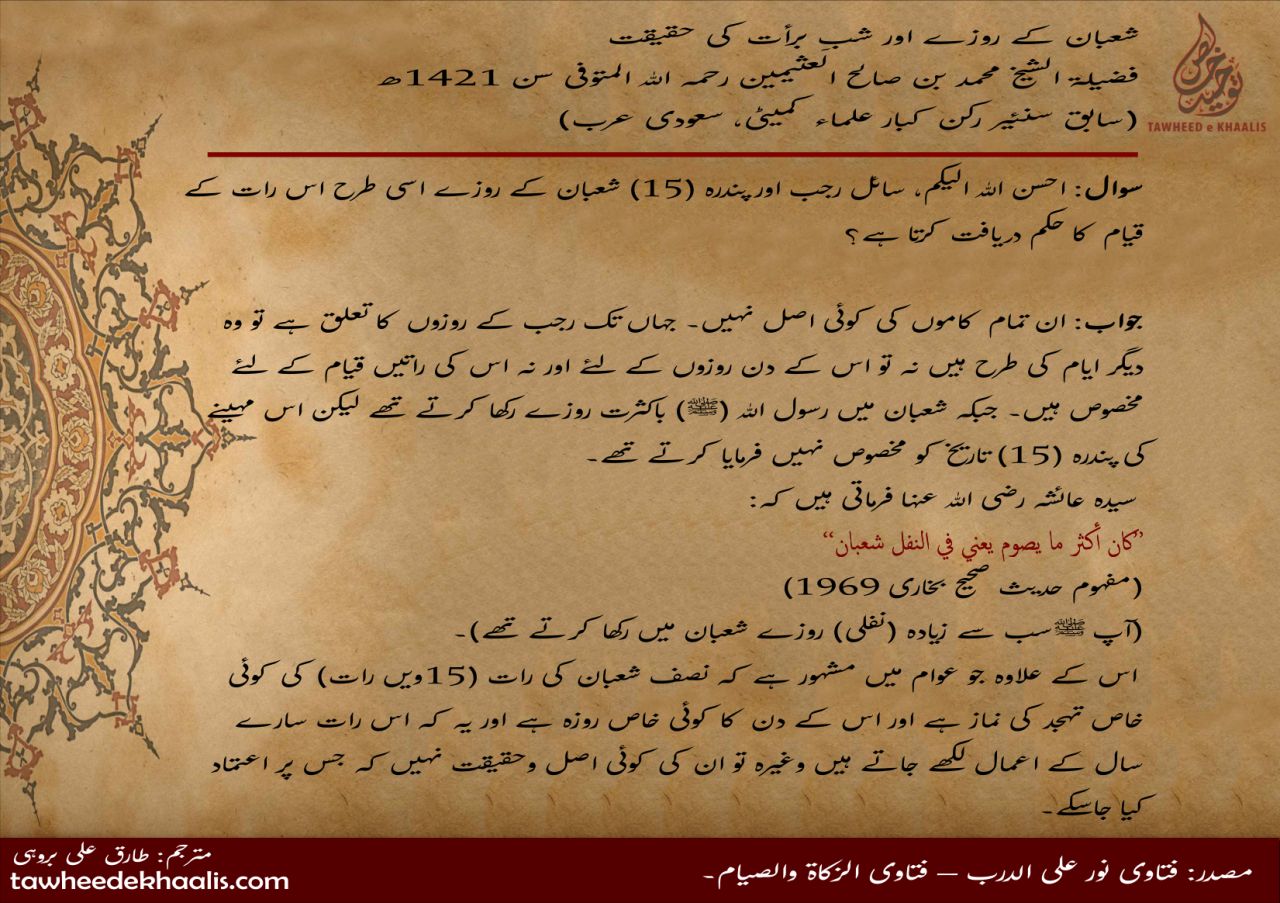 شعبان کے روزے اور شبِ برأت کی حقیقت
فضیلۃ الشیخ محمد بن صالح العثیمین رحمہ اللہ المتوفی سن 1421ھ
(سابق سنئیر رکن کبار علماء کمیٹی، سعودی عرب)
توحید خالص
TAWHEED e KHAALIS
سوال: احسن اللہ الیکم، سائل رجب اور پندرہ (15) شعبان کے روزے اسی طرح اس رات کے
قیام کا حکم دریافت کرتا ہے؟
جواب: ان تمام کاموں کی کوئی اصل نہیں۔ جہاں تک رجب کے روزوں کا تعلق ہے تو وہ
دیگر ایام کی طرح ہیں نہ تو اس کے دن روزوں کے لئے اور نہ اس کی راتیں قیام کے لئے
مخصوص ہیں۔ جبکہ شعبان میں رسول اللہ (ﷺ) باکثرت روزے رکھا کرتے تھے لیکن اس مہینے
کی پندرہ (15) تاریخ کو مخصوص نہیں فرمایا کرتے تھے۔
سیدہ عائشہ رضی اللہ عنہا فرماتی ہیں کہ:
”كان أكثر ما يصوم يعني في النفل شعبان“
(مفہوم حدیث صحیح بخاری 1969)
(آپ ﷺ سب سے زیادہ (نفلی) روزے شعبان میں رکھا کرتے تھے)۔
اس کے علاوہ جو عوام میں مشہور ہے کہ نصف شعبان کی رات (15ویں رات) کی کوئی
خاص تہجد کی نماز ہے اور اس کے دن کا کوئی خاص روزہ ہے اور یہ کہ اس رات سارے
سال کے اعمال لکھے جاتے ہیں وغیرہ تو ان کی کوئی اصل وحقیقت نہیں کہ جس پر اعتماد
کیا جاسکے۔
مصدر: فتاوى نور على الدرب – فتاوى الزكاة والصيام۔
مترجم: طارق علی بروہی
tawheedekhaalis.com